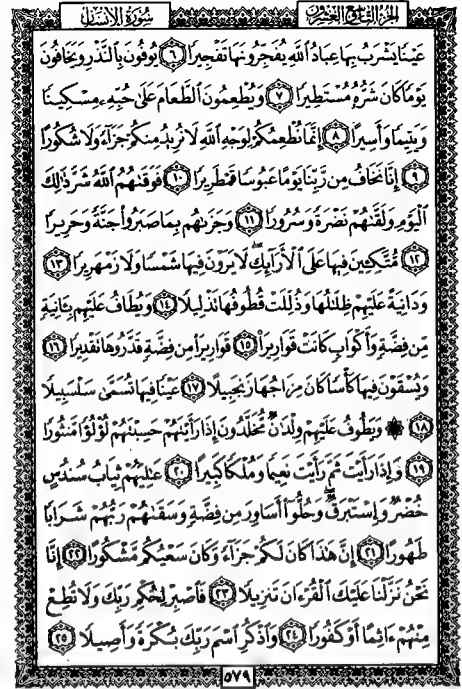 سُورَةُ الإِنسَانِ
الجُزءُ التَّاسِعُ وَالعِشْرُونَ
عَيْنًا يَشْرَبُ بِهَا عِبَادُ ٱللَّهِ يُفَجِّرُونَهَا تَفْجِيرًا ٦ يُوفُونَ بِٱلنَّذْرِ وَيَخَافُونَ
يَوْمًا كَانَ شَرُّهُۥ مُسْتَطِيرًا ٧ وَيُطْعِمُونَ ٱلطَّعَامَ عَلَىٰ حُبِّهِۦ مِسْكِينًا
وَيَتِيمًا وَأَسِيرًا ٨ إِنَّمَا نُطْعِمُكُمْ لِوَجْهِ ٱللَّهِ لَا نُرِيدُ مِنكُمْ جَزَآءً وَلَا شُكُورًا
٩ إِنَّا نَخَافُ مِن رَّبِّنَا يَوْمًا عَبُوسًا قَمْطَرِيرًا ١٠ فَوَقَىٰهُمُ ٱللَّهُ شَرَّ ذَٰلِكَ
ٱلْيَوْمِ وَلَقَّىٰهُمْ نَضْرَةً وَسُرُورًا ١١ وَجَزَىٰهُم بِمَا صَبَرُوا۟ جَنَّةً وَحَرِيرًا
١٢ مُّتَّكِـِٔينَ فِيهَا عَلَى ٱلْأَرَآئِكِ ۖ لَا يَرَوْنَ فِيهَا شَمْسًا وَلَا زَمْهَرِيرًا ١٣
وَدَانِيَةً عَلَيْهِمْ ظِلَٰلُهَا وَذُلِّلَتْ قُطُوفُهَا تَذْلِيلًا ١٤ وَيُطَافُ عَلَيْهِم بِـَٔانِيَةٍ
مِّن فِضَّةٍ وَأَكْوَابٍ كَانَتْ قَوَارِيرَا۠ ١٥ قَوَارِيرَا۟ مِن فِضَّةٍ قَدَّرُوهَا تَقْدِيرًا ١٦
وَيُسْقَوْنَ فِيهَا كَأْسًا كَانَ مِزَاجُهَا زَنجَبِيلًا ١٧ عَيْنًا فِيهَا تُسَمَّىٰ سَلْسَبِيلًا
١٨ ۞ وَيَطُوفُ عَلَيْهِمْ وِلْدَٰنٌ مُّخَلَّدُونَ إِذَا رَأَيْتَهُمْ حَسِبْتَهُمْ لُؤْلُؤًا مَّنثُورًا
١٩ وَإِذَا رَأَيْتَ ثَمَّ رَأَيْتَ نَعِيمًا وَمُلْكًا كَبِيرًا ٢٠ عَٰلِيَهُمْ ثِيَابُ سُندُسٍ
خُضْرٌ وَإِسْتَبْرَقٌ ۖ وَحُلُّوٓا۟ أَسَاوِرَ مِن فِضَّةٍ وَسَقَىٰهُمْ رَبُّهُمْ شَرَابًا
طَهُورًا ٢١ إِنَّ هَٰذَا كَانَ لَكُمْ جَزَآءً وَكَانَ سَعْيُكُم مَّشْكُورًا ٢٢ إِنَّا
نَحْنُ نَزَّلْنَا عَلَيْكَ ٱلْقُرْءَانَ تَنزِيلًا ٢٣ فَٱصْبِرْ لِحُكْمِ رَبِّكَ وَلَا تُطِعْ
مِنْهُمْ ءَاثِمًا أَوْ كَفُورًا ٢٤ وَٱذْكُرِ ٱسْمَ رَبِّكَ بُكْرَةً وَأَصِيلًا ٢٥
٥٧٩